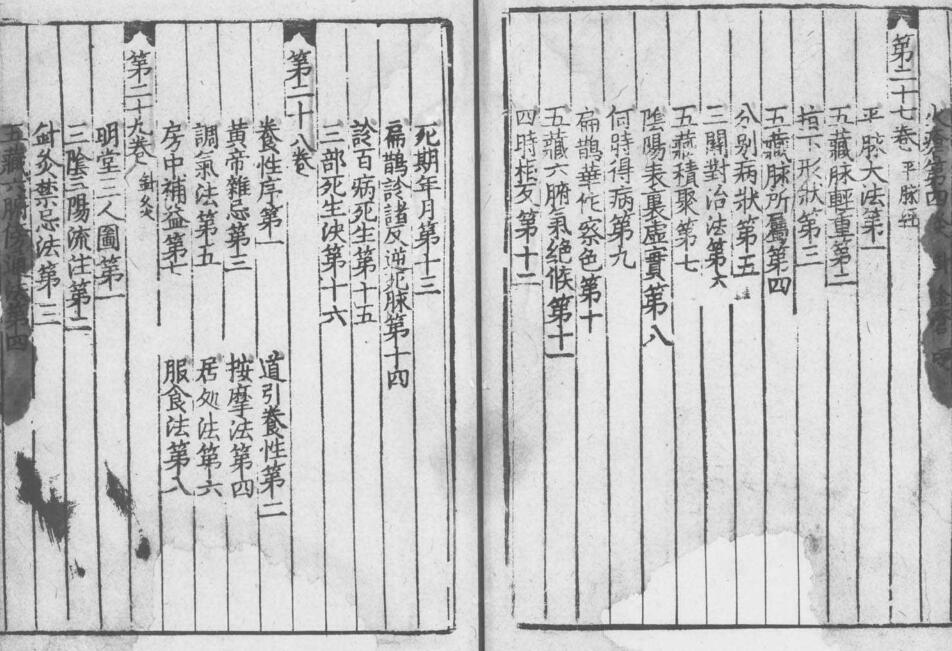 第二十七卷 平脉經
平脉大法第一
五藏脉輕重第二
指下形狀第三
五藏脉所屬第四
分别病狀第五
三關對治法第六
五藏積聚第七
陰陽表裏虚實第八
何時得病第九
扁鵲華佗察色第十
五藏六腑氣絶候第十一
四時相反第十二
死期年月第十三
扁鵲診諸反逆死脉第十四
診百病死生第十五
三部死生決第十六
第二十八卷
養性序第一 道引養性第二
黄帝雜忌第三 按摩法第四
調氣法第五 居处法第六
房中補益第七 服食法第八
第二十九卷 針灸
明堂三人圖第一
三陰三陽流注第二
針灸禁忌法第三
五藏六腑
第四